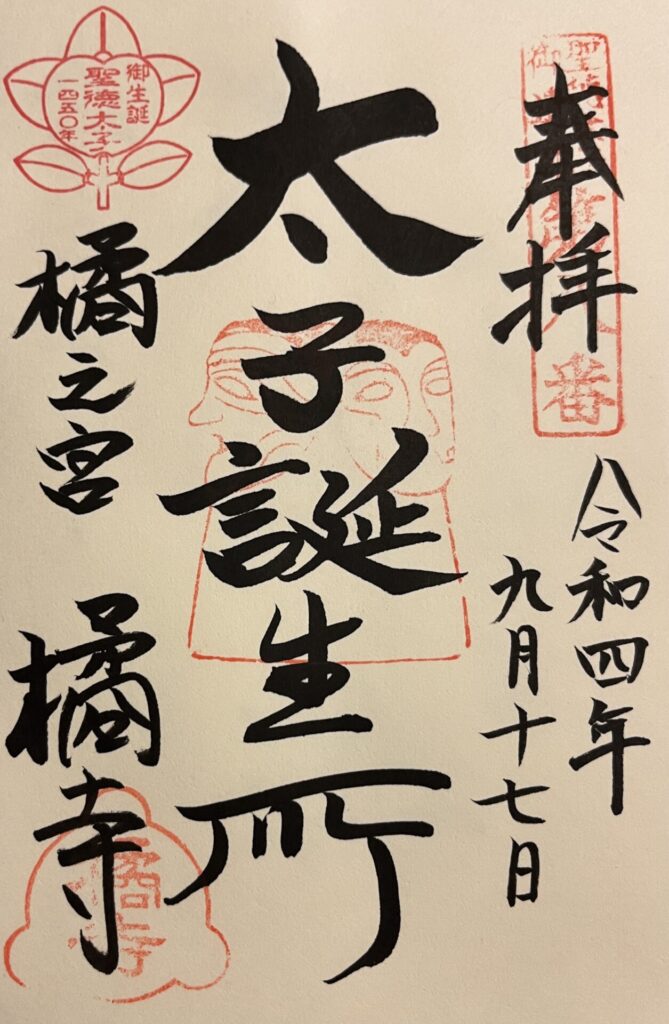 奉拝
令和四年
九月十七日
太子誕生所
橘之宮
橘寺
御生誕
聖徳太子
一四五〇年
橘寺